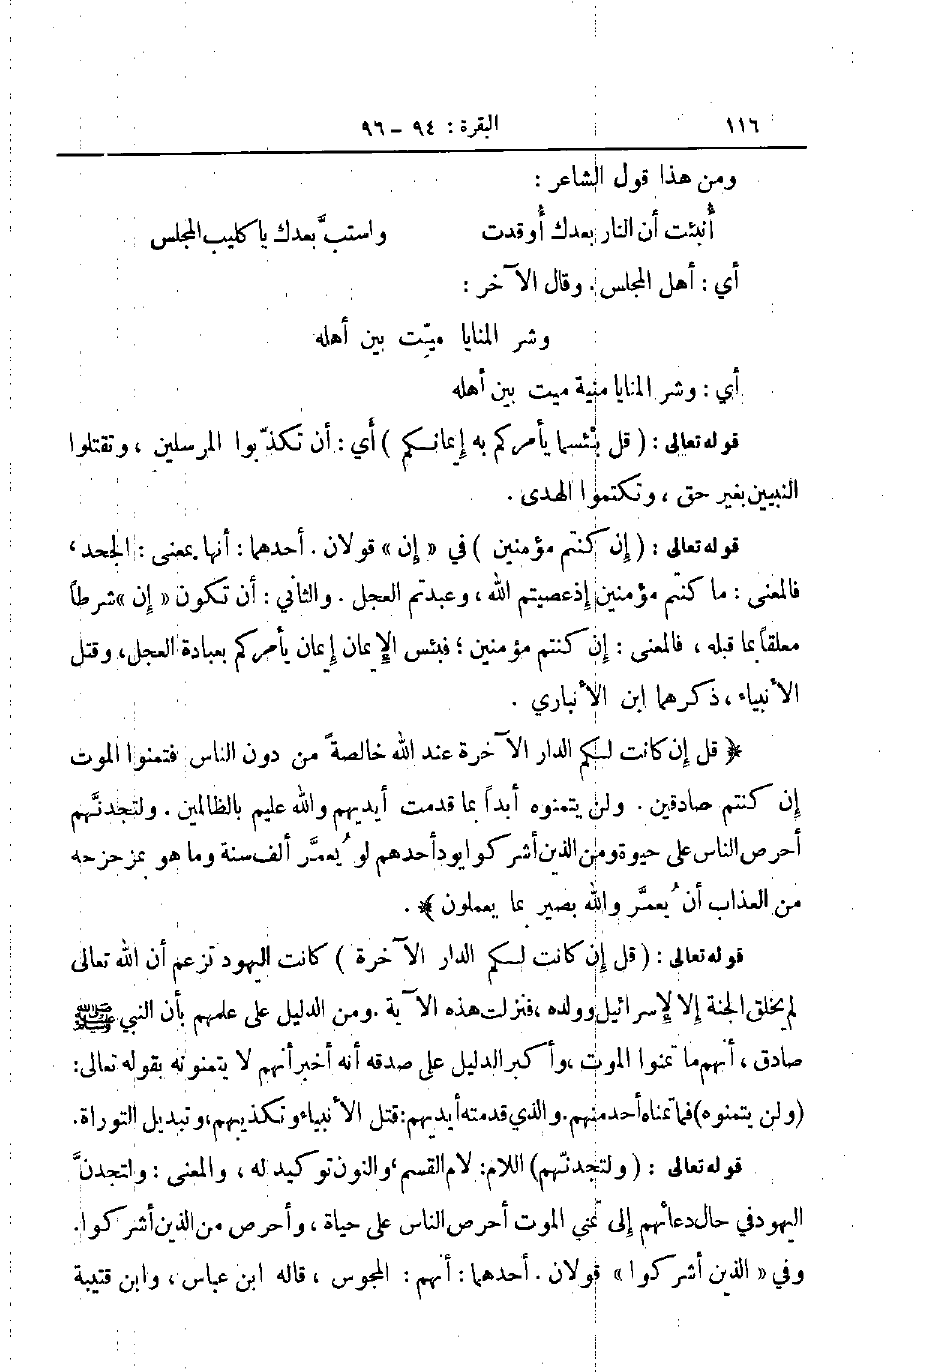 ١١٦
البقرة : ٩٤ – ٩٦
ومن هذا قول الشاعر :
أُنبئت أن النار بعدك أُوقدت واستبَّ بعدك يا كليب المجلس
أي : أهل المجلس . وقال الآخر :
وشر المنايا ميّت بين أهله
أي : وشر المنايا منية ميت بين أهله
قوله تعالى : ( قل بئسما يأمركم به إيمانكم ) أي : أن تكذّبوا المرسلين ، وتقتلوا
النبيين بغير حق ، وتكتموا الهدى .
قوله تعالى : ( إن كنتم مؤمنين ) في « إن » قولان . أحدهما : أنها بمعنى : الجحد ،
فالمعنى : ما كنتم مؤمنين إذ عصيتم الله ، وعبدتم العجل . والثاني : أن تكون « إن » شرطاً
معلقاً بما قبله ، فالمعنى : إن كنتم مؤمنين ؛ فبئس الإيمان إيمان يأمركم بعبادة العجل ، وقتل
الأنبياء ، ذكرهما ابن الأنباري .
﴿ قل إن كانت لكم الدار الآخرة عند الله خالصةً من دون الناس فتمنوا الموت
إن كنتم صادقين . ولن يتمنوه أبداً بما قدمت أيديهم والله عليم بالظالمين . ولتجدنَّهم
أحرص الناس على حيوة ومن الذين أشركوا يود أحدهم لو يُعمَّر ألف سنة وما هو بمزحزحه
من العذاب أن يُعمَّر والله بصير بما يعملون ﴾ .
قوله تعالى : ( قل إن كانت لكم الدار الآخرة ) كانت اليهود تزعم أن الله تعالى
لم يخلق الجنة إلا لإسرائيل وولده ، فنزلت هذه الآية . ومن الدليل على علمهم بأن النبي ﷺ
صادق ، أنهم ما تمنوا الموت ، وأكبر الدليل على صدقه أنه أخبر أنهم لا يتمنونه بقوله تعالى :
( ولن يتمنوه ) فما تمناه أحد منهم . والذي قدمته أيديهم : قتل الأنبياء وتكذيبهم ، وتبديل التوراة .
قوله تعالى : ( ولتجدنّهم ) اللام : لام القسم ، والنون توكيد له ، والمعنى : ولتجدنَّ
اليهود في حال دعائهم إلى تمنّي الموت أحرص الناس على حياة ، وأحرص من الذين أشركوا .
وفي « الذين أشركوا » قولان . أحدهما : أنهم : المجوس ، قاله ابن عباس ، وابن قتيبة